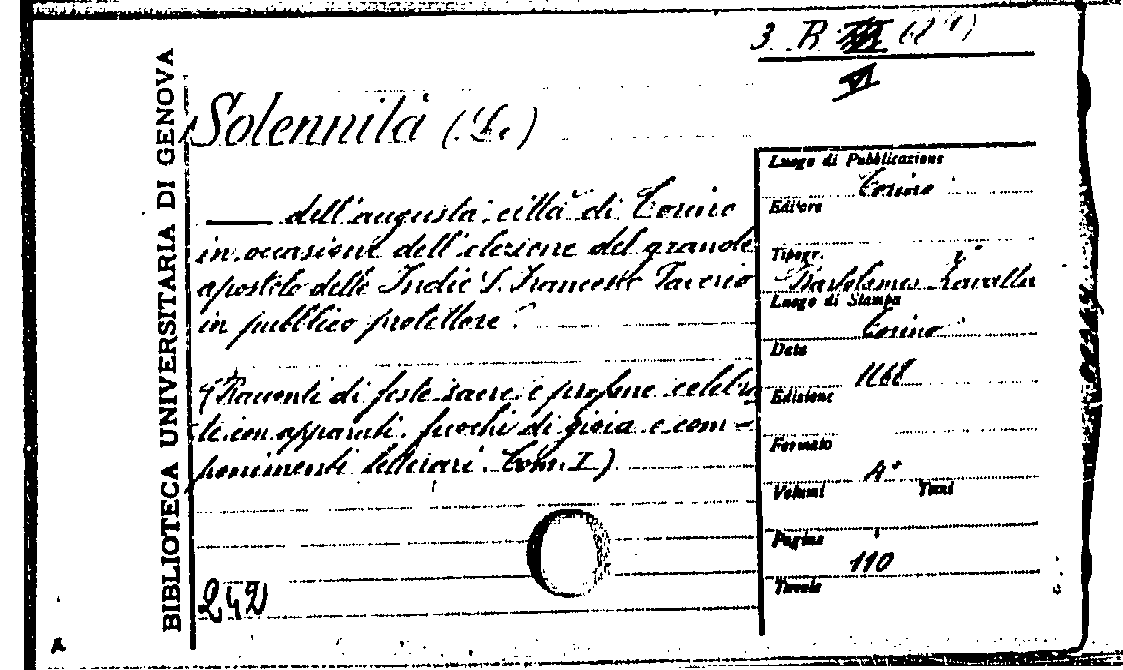 3. R
VI
BIBLIOTECA UNIVERSITARIA DI GENOVA
Solennità (Le)
dell'augusta città di Torino
in occasione dell'elezione del grande
apostolo delle Indie S. Francesco Saverio
in pubblico protettore.
(Racconti di feste sacre e profane celebra
te con apparati, fuochi di gioia e com=
ponimenti letterari. Tom. I)
242
Luogo di Pubblicazione
Torino
Editore
Tipogr.
Bartolomeo Zavatta
Luogo di Stampa
Torino
Data
Edizione
Formato
4°
Volumi Tomi
Pagine
110
Tavole